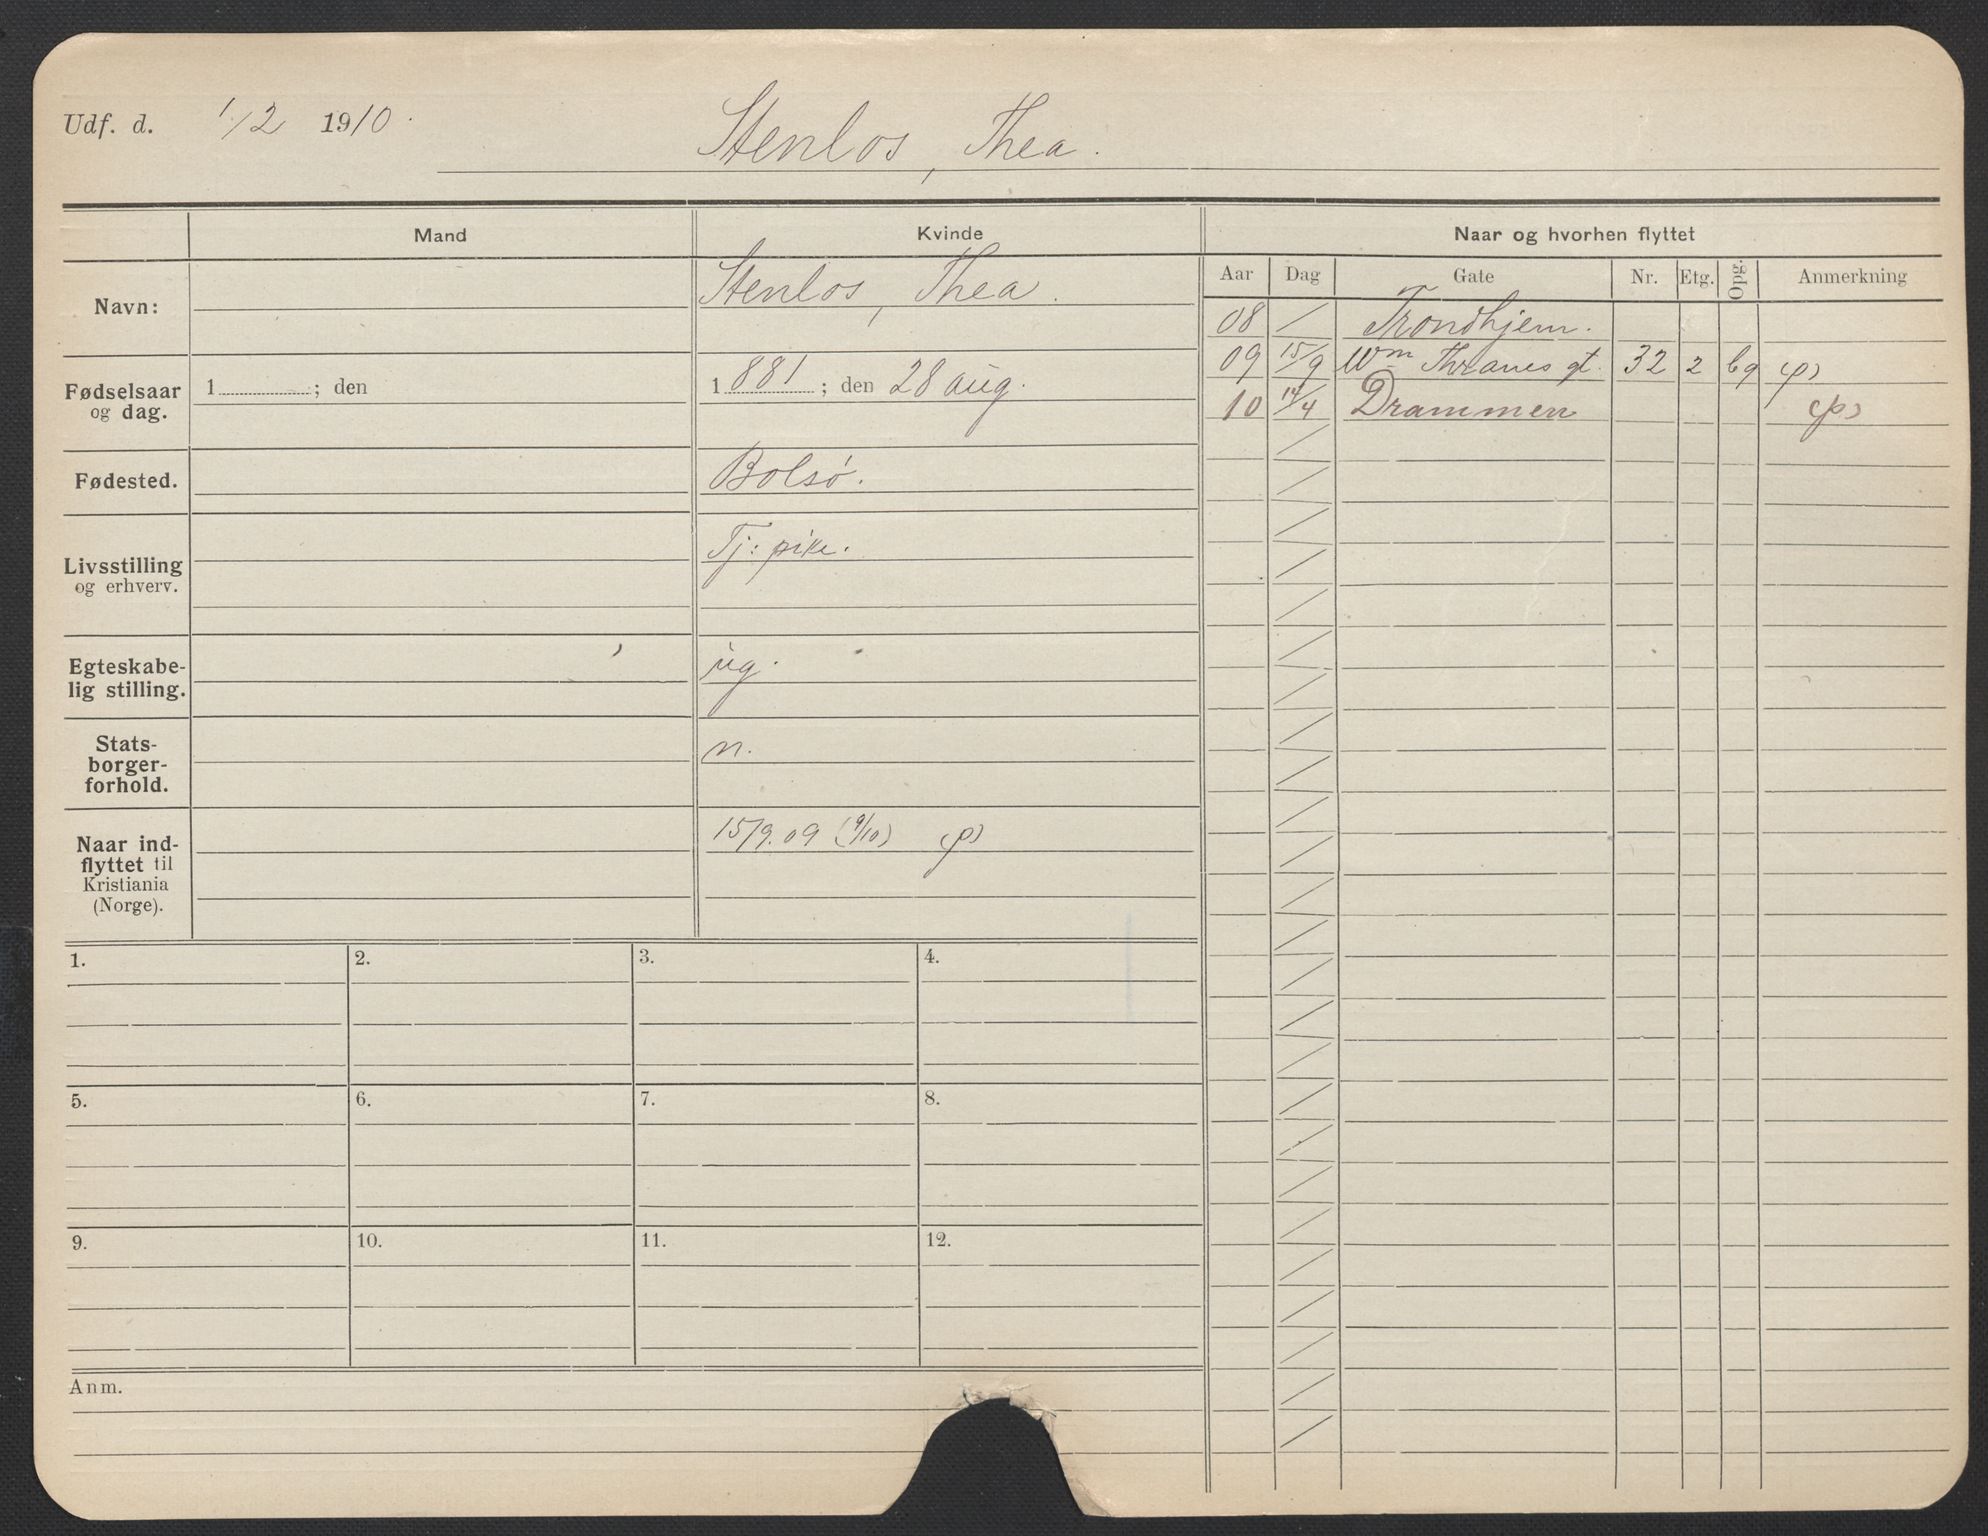 Udf. d. 1/2 1910.
Stenlos, Thea.
Mand Kvinde Naar og hvorhen flyttet
Aar Dag Gate Nr. Etg. Opg. Anmerkning
Navn: Stenlos, Thea.
08 / Trondhjem.
09 15/9 Wm Thranes gt. 32 2 bg (p)
10 14/4 Drammen (p)
Fødselsaar
og dag.
1 ; den
1 881 ; den 28 aug.
Fødested. Bolsø.
Livsstilling
og erhverv.
Tj: pike.
Egteskabe-
lig stilling.
ug.
Stats-
borger-
forhold.
n.
Naar ind-
flyttet til
Kristiania
(Norge).
15/9.09 (9/10) (p)
1. 2. 3. 4.
5. 6. 7. 8.
9. 10. 11. 12.
Anm.